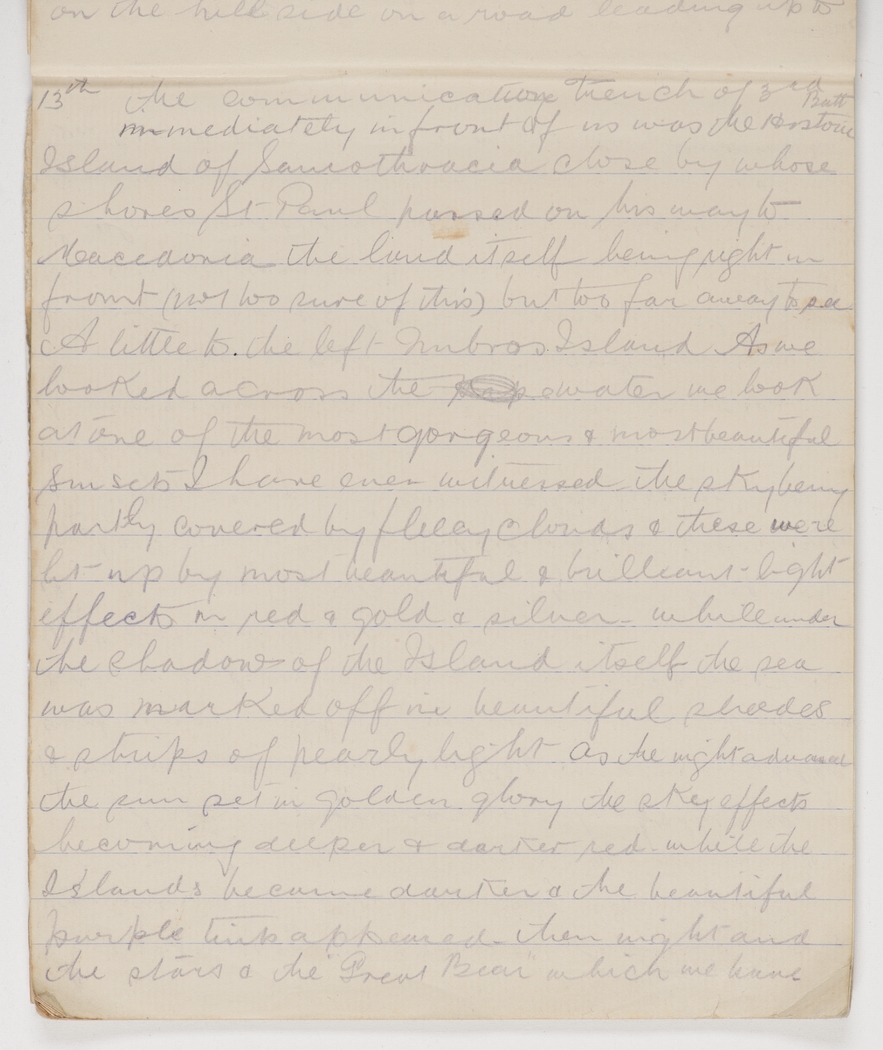 on the hill side on a road leading up to
13th the communication trench of 3rd Batt
immediately in front of us was the Historic
Island of Samothracia close by whose
shores St Paul passed on his way to
Macedonia the land itself being right in
front (not too sure of this) but too far away to see
A little to the left Imbros Island As we
looked across the water we look
at one of the most gorgeous & most beautiful
Sunsets I have ever witnessed the sky being
partly covered by fleecy clouds & these were
lit up by most beautiful & brilliant light
effects in red & gold & silver - while under
the shadow of the Island itself the sea
was marked off in beautiful shades
& strips of pearly light As the night advanced
the sun set in golden glory the sky effects
becoming deeper & darker red while the
Islands became darker & the beautiful
purple tints appeared - then night and
the stars & the "Great Bear" which we have